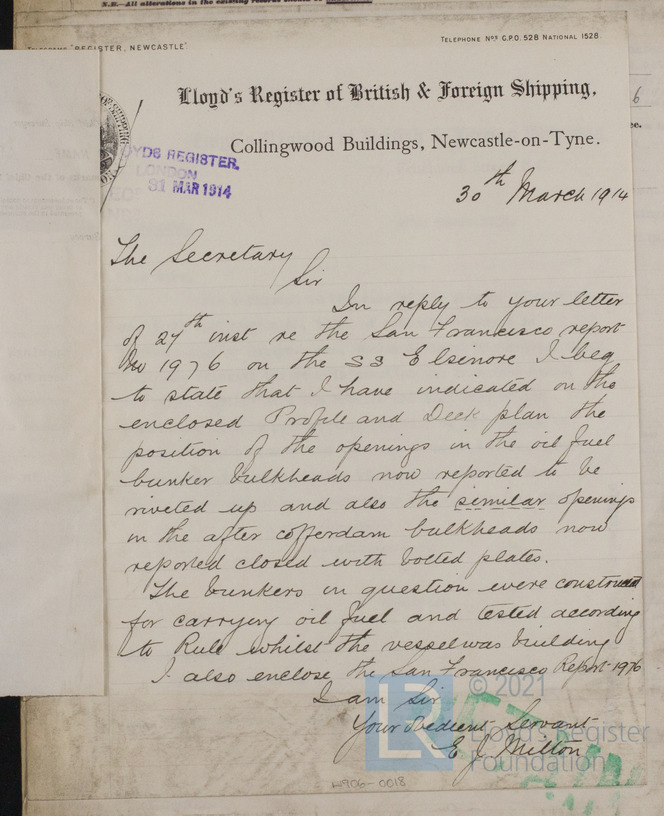 N.B.—All alterations in the existing records should be
"REGISTER, NEWCASTLE"
TELEPHONE Nos G.P.O. 528 NATIONAL 1528.
Lloyd's Register of British & Foreign Shipping.
Collingwood Buildings, Newcastle-on-Tyne.
LLOYDS REGISTER,
LONDON
31 MAR 1914
30th March 1914
The Secretary
Sir
In reply to your letter
of 27th inst re the San Francisco report
No 1976 on the SS Elsinore I beg
to state that I have indicated on the
enclosed Profile and Deck plan the
position of the openings in the oil fuel
bunker bulkheads now reported to be
riveted up and also the similar openings
in the after cofferdam bulkheads now
reported closed with bolted plates.
The bunkers in question were constructed
for carrying oil fuel and tested according
to Rule whilst the vessel was building
I also enclose the San Francisco Report 1976
I am Sir
Your obedient Servant
E J Milton
© 2021
Lloyd's Register
Foundation
LR
6